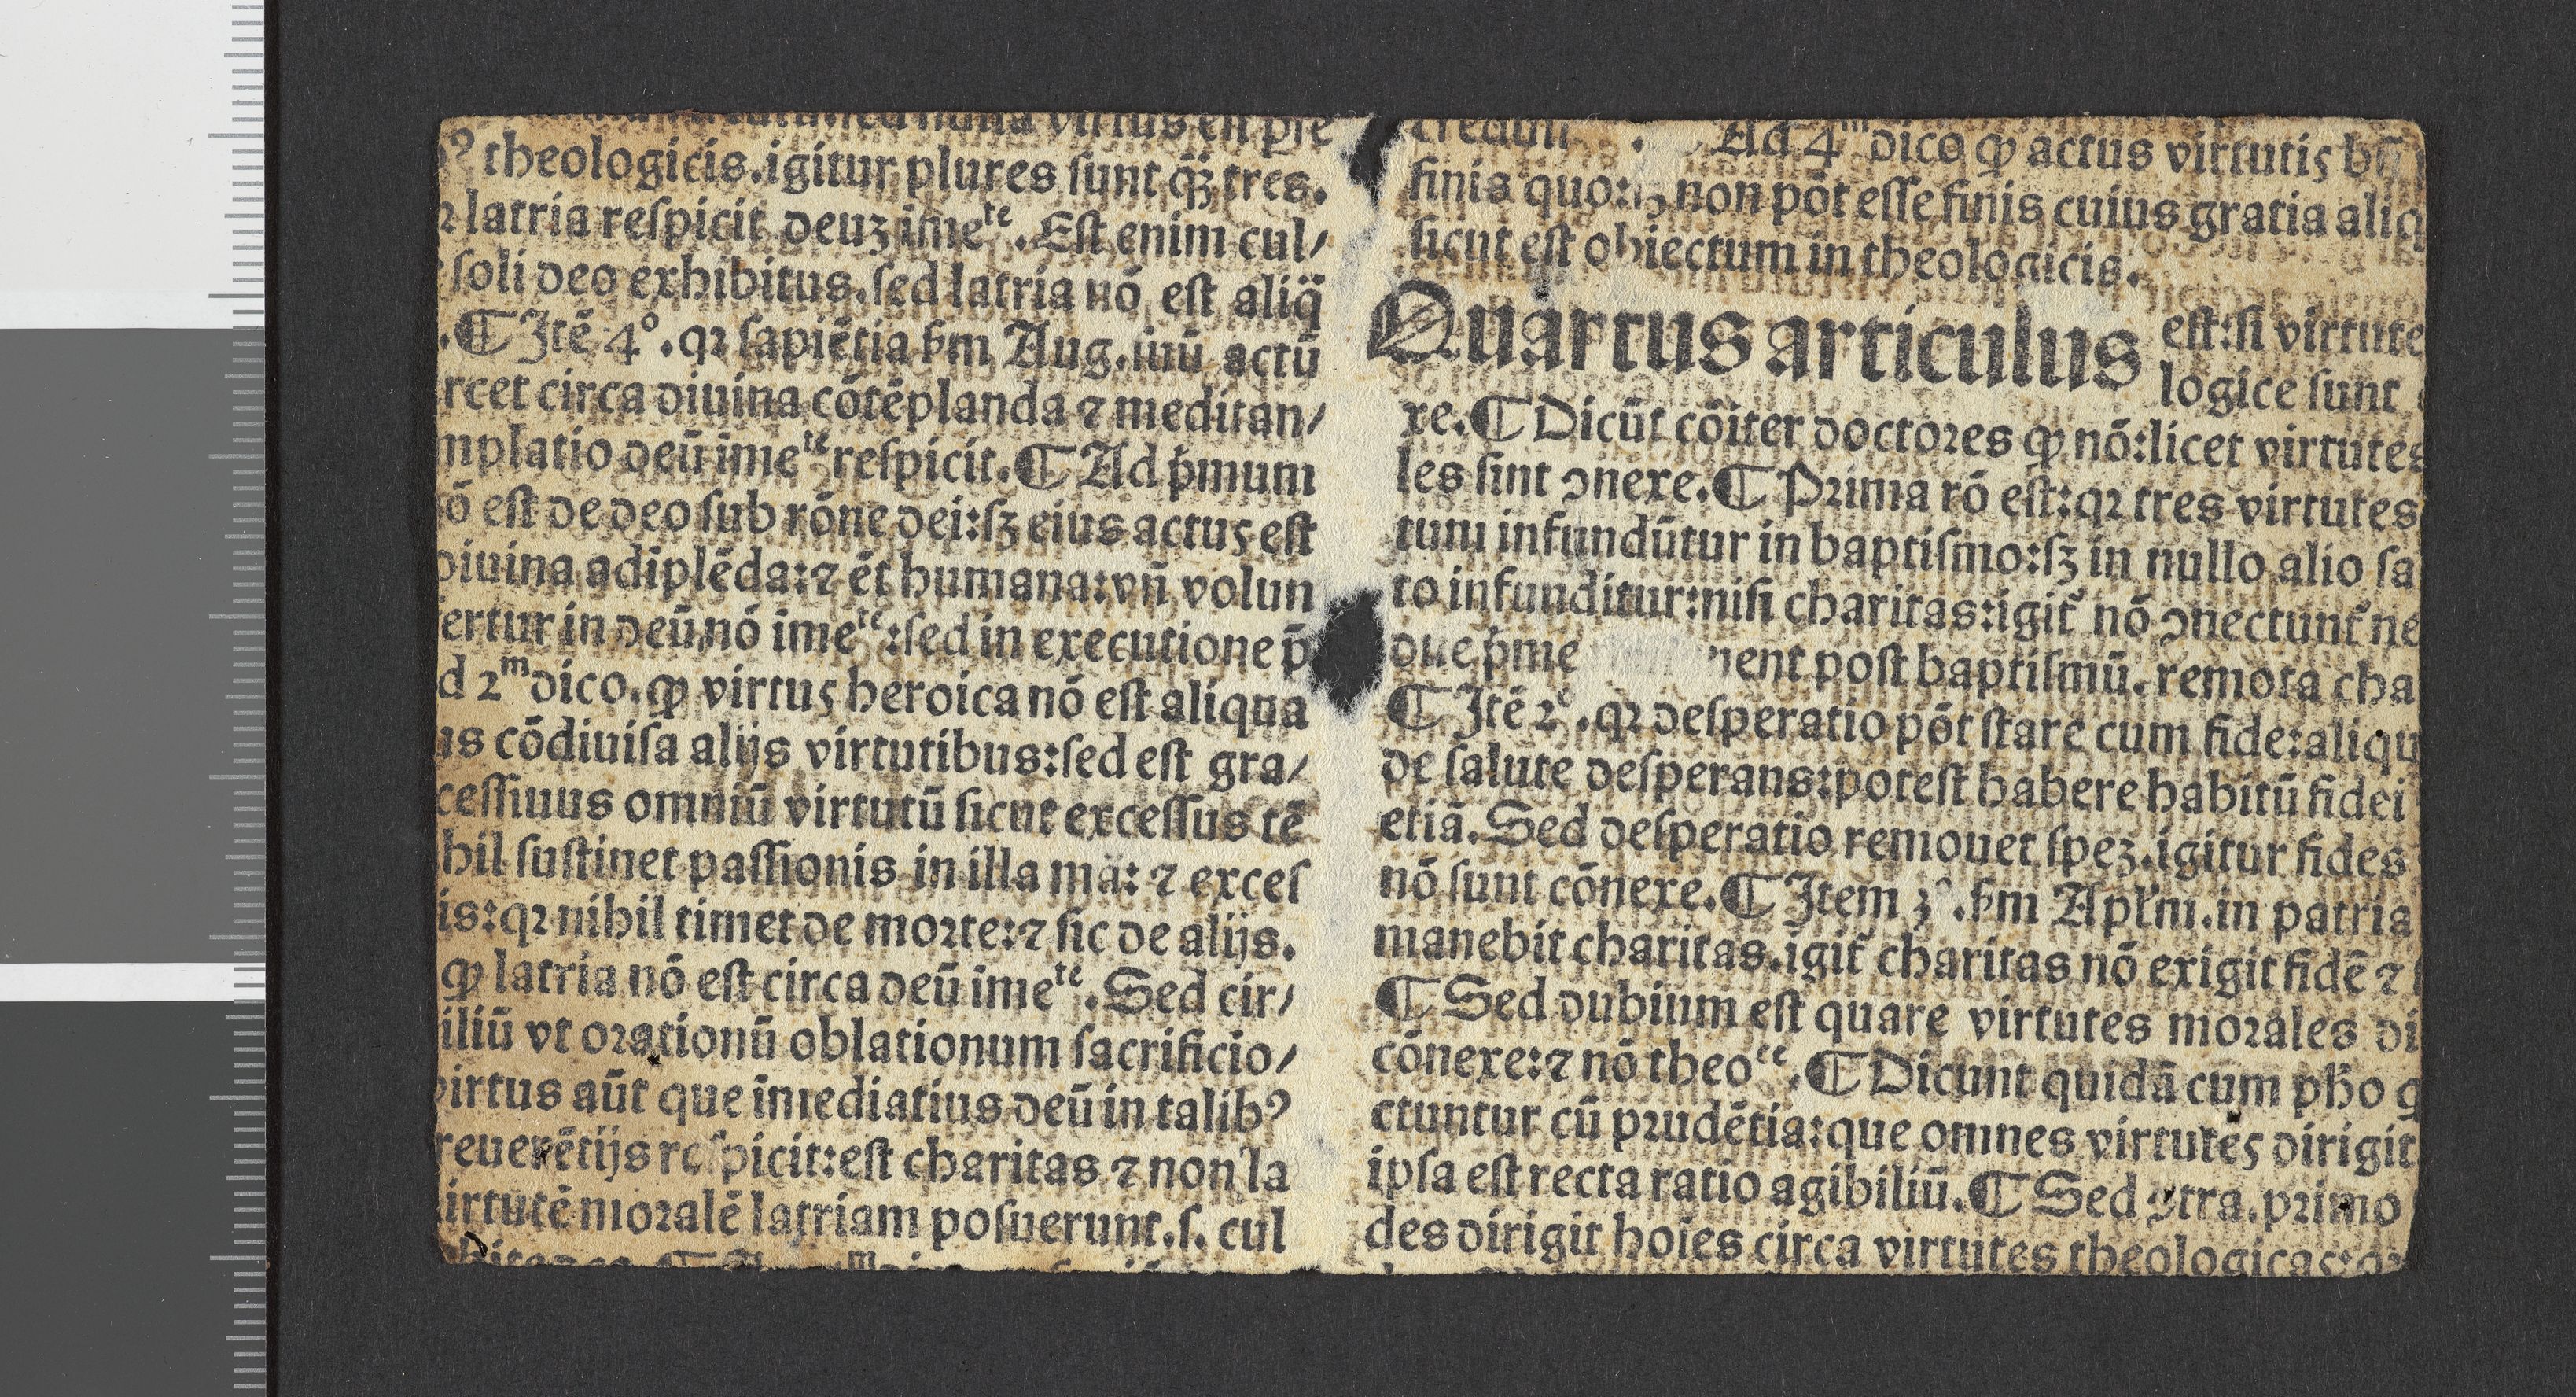 nulla virtus est pre
theologicis.igitur plures sunt qꝫ tres.
latria respicit deuꝫ imeᵗᵉ.Est enim cul/
soli deo exhibitus.sed latria nō est aliq̄
.¶ Itē 4°.qꝛ sapiētia ẜm Aug.iuū actū
rcet circa diuina cōtēplanda ⁊ meditan/
mplatio deū imeᵗᵉ respicit.¶ Ad pͥmum
ō est de deo sub rōne dei:sꝫ eius actus est
diuina adiplēda:⁊ ēt humana:vn̄ volun
ertur in deū nō imeᵗᵉ:sed in executione p̄
d 2ᵐ dico.ꝙ virtus heroica nō est aliqua
us cōdiuisa alijs virtutibus:sed est gra/
cessiuus omniū virtutū sicut excessus tē
hil sustinet passionis in illa mā:⁊ exces
is:qꝛ nihil timet de morte:⁊ sic de alijs.
ꝙ latria nō est circa deū imeᵗᵉ.Sed cir/
iliū vt orationū oblationum sacrificio/
virtus aūt que imediatius deū in talibꝰ
reuerētijs respicit:est charitas ⁊ non la
irtutē moralē latriam posuerunt.s. cul
Ad 4ᵐ dico ꝙ actus virtutis
finis quo:sꝫ non pōt esse finis cuius gratia aliq
sicut est obiectum in theologicis.
Quartus articulus est:si virtute
logice sunt
xe.¶ Dicūt cōiter doctores ꝙ nō:licet virtutes
les sint ꝯnexe.¶ Prima rō est:qꝛ tres virtutes
tum infundūtur in baptismo:sꝫ in nullo alio sa
to infunditur:nisi charitas:igit̃ nō ꝯnectunt̃ ne
due pͥme nent post baptismū.remota cha
¶ Itē 2°.qꝛ desperatio pōt stare cum fide:aliqu
de salute desperans:potest habere habitū fidei
etiā.Sed desperatio remouet speꝫ.igitur fides
nō sunt cōnexe.¶ Item 3°.ẜm Apl'm.in patria
manebit charitas.igit̃ charitas nō exigit fidē ⁊
¶ Sed dubium est quare virtutes morales di
cōnexe:⁊ nō theoᶜᵉ.¶ Dicunt quidā cum pho q
ctuntur cū prudētia:que omnes virtutes dirigit
ipsa est recta ratio agibiliū.¶ Sed ꝯtra.primo
des dirigit hoīes circa virtutes theologicas:qꝛ